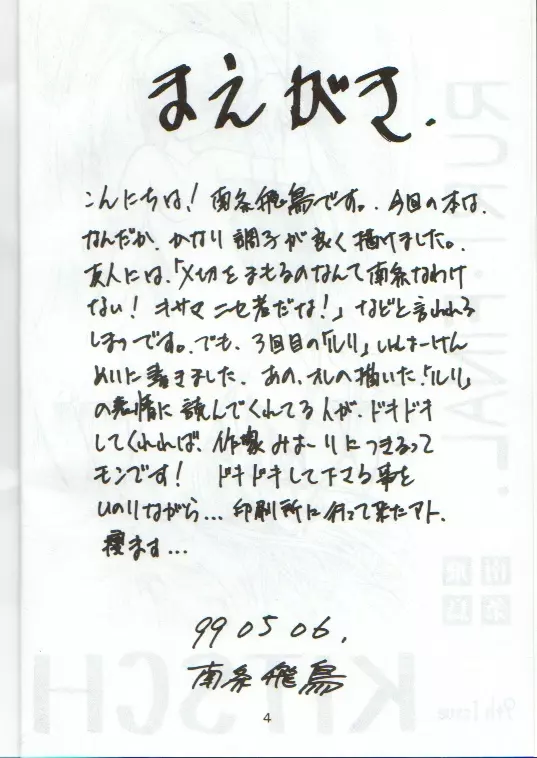 まえがき.
こんにちは! 南条飛鳥です。今回の本は、
なんだか、かなり調子が良く描けました。
友人には、「〆切をまもるのなんて南条なわけ
ない! キサマニセ者だな!」などと言われる
しまつです。でも、3回目の「ルリ」しんけん
めいに書きました。あの、オレの描いた「ルリ」
の表情に読んでくれてる人が、ドキドキ
してくれれば、作家みょーりにつきるって
モンです! ドキドキして下さる事を
いのりながら… 印刷所に行って来たアト、
寝ます…
99 05 06.
南条飛鳥
4
RURI・FINAL.
南条
飛鳥
KITSCH
9th Issue